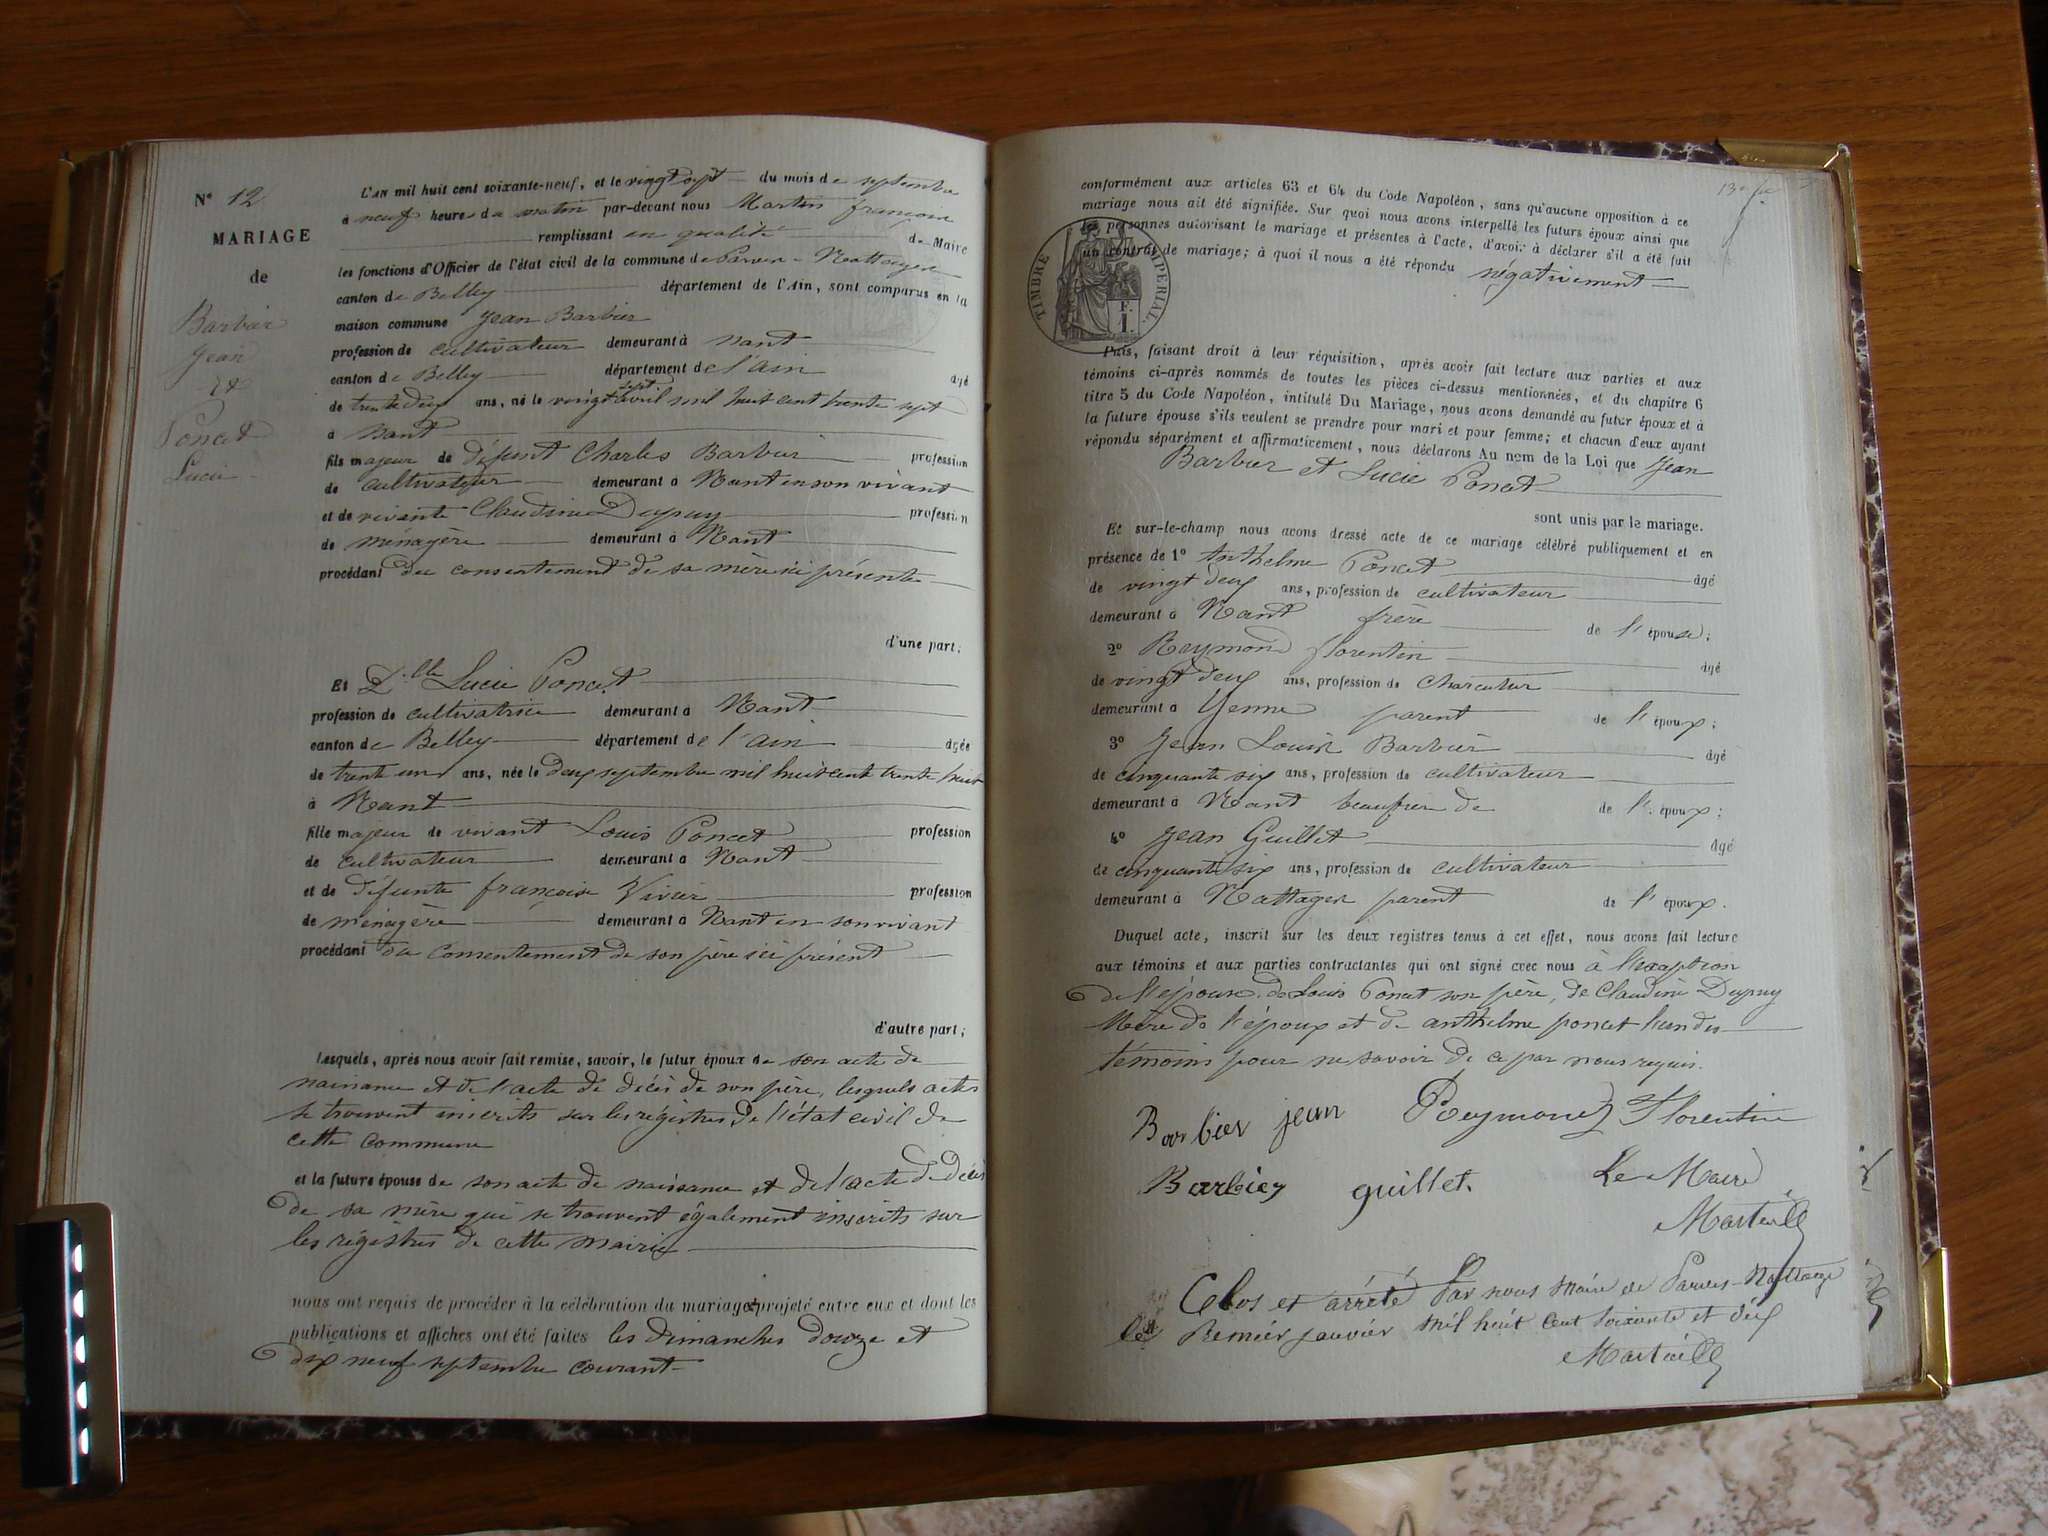 N° 12
MARIAGE
de
Barbier
Jean
&
Poncet
Lucie
L'AN mil huit cent soixante-neuf, et le vingt sept du mois de septembre
à neuf heures du matin par-devant nous Martin françois
remplissant en qualité de Maire
les fonctions d'Officier de l'état civil de la commune de Parves-Nattages
canton de Belley département de l'Ain, sont comparus en la
maison commune Jean Barbier
profession de cultivateur demeurant à Nant
canton de Belley département de l'ain âgé
de trente deux ans, né le vingt sept avril mil huit cent trente sept
à Nant
fils majeur de défunt Charles Barbier profession
de cultivateur demeurant à Nant en son vivant
et de vivante Claudine Dupuy profession
de ménagère demeurant à Nant
procédant du consentement de sa mère ici présente
d'une part;
Et Dlle Lucie Poncet
profession de cultivatrice demeurant à Nant
canton de Belley département de l'ain âgée
de trente un ans, née le deux septembre mil huit cent trente huit
à Nant
fille majeur de vivant Louis Poncet profession
de cultivateur demeurant à Nant
et de défunte françoise Vivier profession
de ménagère demeurant à Nant en son vivant
procédant du consentement de son père ici présent
d'autre part;
Lesquels, après nous avoir fait remise, savoir, le futur époux de son acte de
naissance et de l'acte de décès de son père, lesquels actes
se trouvent inscrits sur les régistres de l'état civil de
cette commune
et la future épouse de son acte de naissance et de l'acte de décès
de sa mère qui se trouvent également inscrits sur
les régistres de cette mairie
nous ont requis de procéder à la célébration du mariage projeté entre eux et dont les
publications et affiches ont été faites les dimanches douze et
dix neuf septembre courant
conformément aux articles 63 et 64 du Code Napoléon, sans qu'aucune opposition à ce
mariage nous ait été signifiée. Sur quoi nous avons interpellé les futurs époux ainsi que
les personnes autorisant le mariage et présentes à l'acte, d'avoir à déclarer s'il a été fait
un contrat de mariage; à quoi il nous a été répondu négativement
TIMBRE IMPERIAL
F.
1.
Puis, faisant droit à leur réquisition, après avoir fait lecture aux parties et aux
témoins ci-après nommés de toutes les pièces ci-dessus mentionnées, et du chapitre 6
titre 5 du Code Napoléon, intitulé Du Mariage, nous avons demandé au futur époux et à
la future épouse s'ils veulent se prendre pour mari et pour femme; et chacun d'eux ayant
répondu séparément et affirmativement, nous déclarons Au nom de la Loi que Jean
Barbier et Lucie Poncet
sont unis par le mariage.
Et sur-le-champ nous avons dressé acte de ce mariage célébré publiquement et en
présence de 1° Anthelme Poncet âgé
de vingt deux ans, profession de cultivateur
demeurant à Nant frère de l'épouse;
2° Reymond florentin âgé
de vingt deux ans, profession de Charcutier
demeurant à Yenne parent de l'époux;
3° Jean Louis Barbier âgé
de cinquante six ans, profession de cultivateur
demeurant à Nant beaufrère de de l'époux;
4° Jean Guillet âgé
de cinquante six ans, profession de cultivateur
demeurant à Nattages parent de l'époux.
Duquel acte, inscrit sur les deux registres tenus à cet effet, nous avons fait lecture
aux témoins et aux parties contractantes qui ont signé avec nous à l'exception
de l'épouse, de Louis Poncet son père, de Claudine Dupuy
Mère de l'époux et de anthelme poncet l'un des
témoins pour ne savoir de ce par nous requis.
Barbier jean Reymond Florentin
Barbier guillet. Le Maire
Clos et arrêté Par nous Maire de Parves-Nattage
le Premier janvier mil huit cent soixante et dix